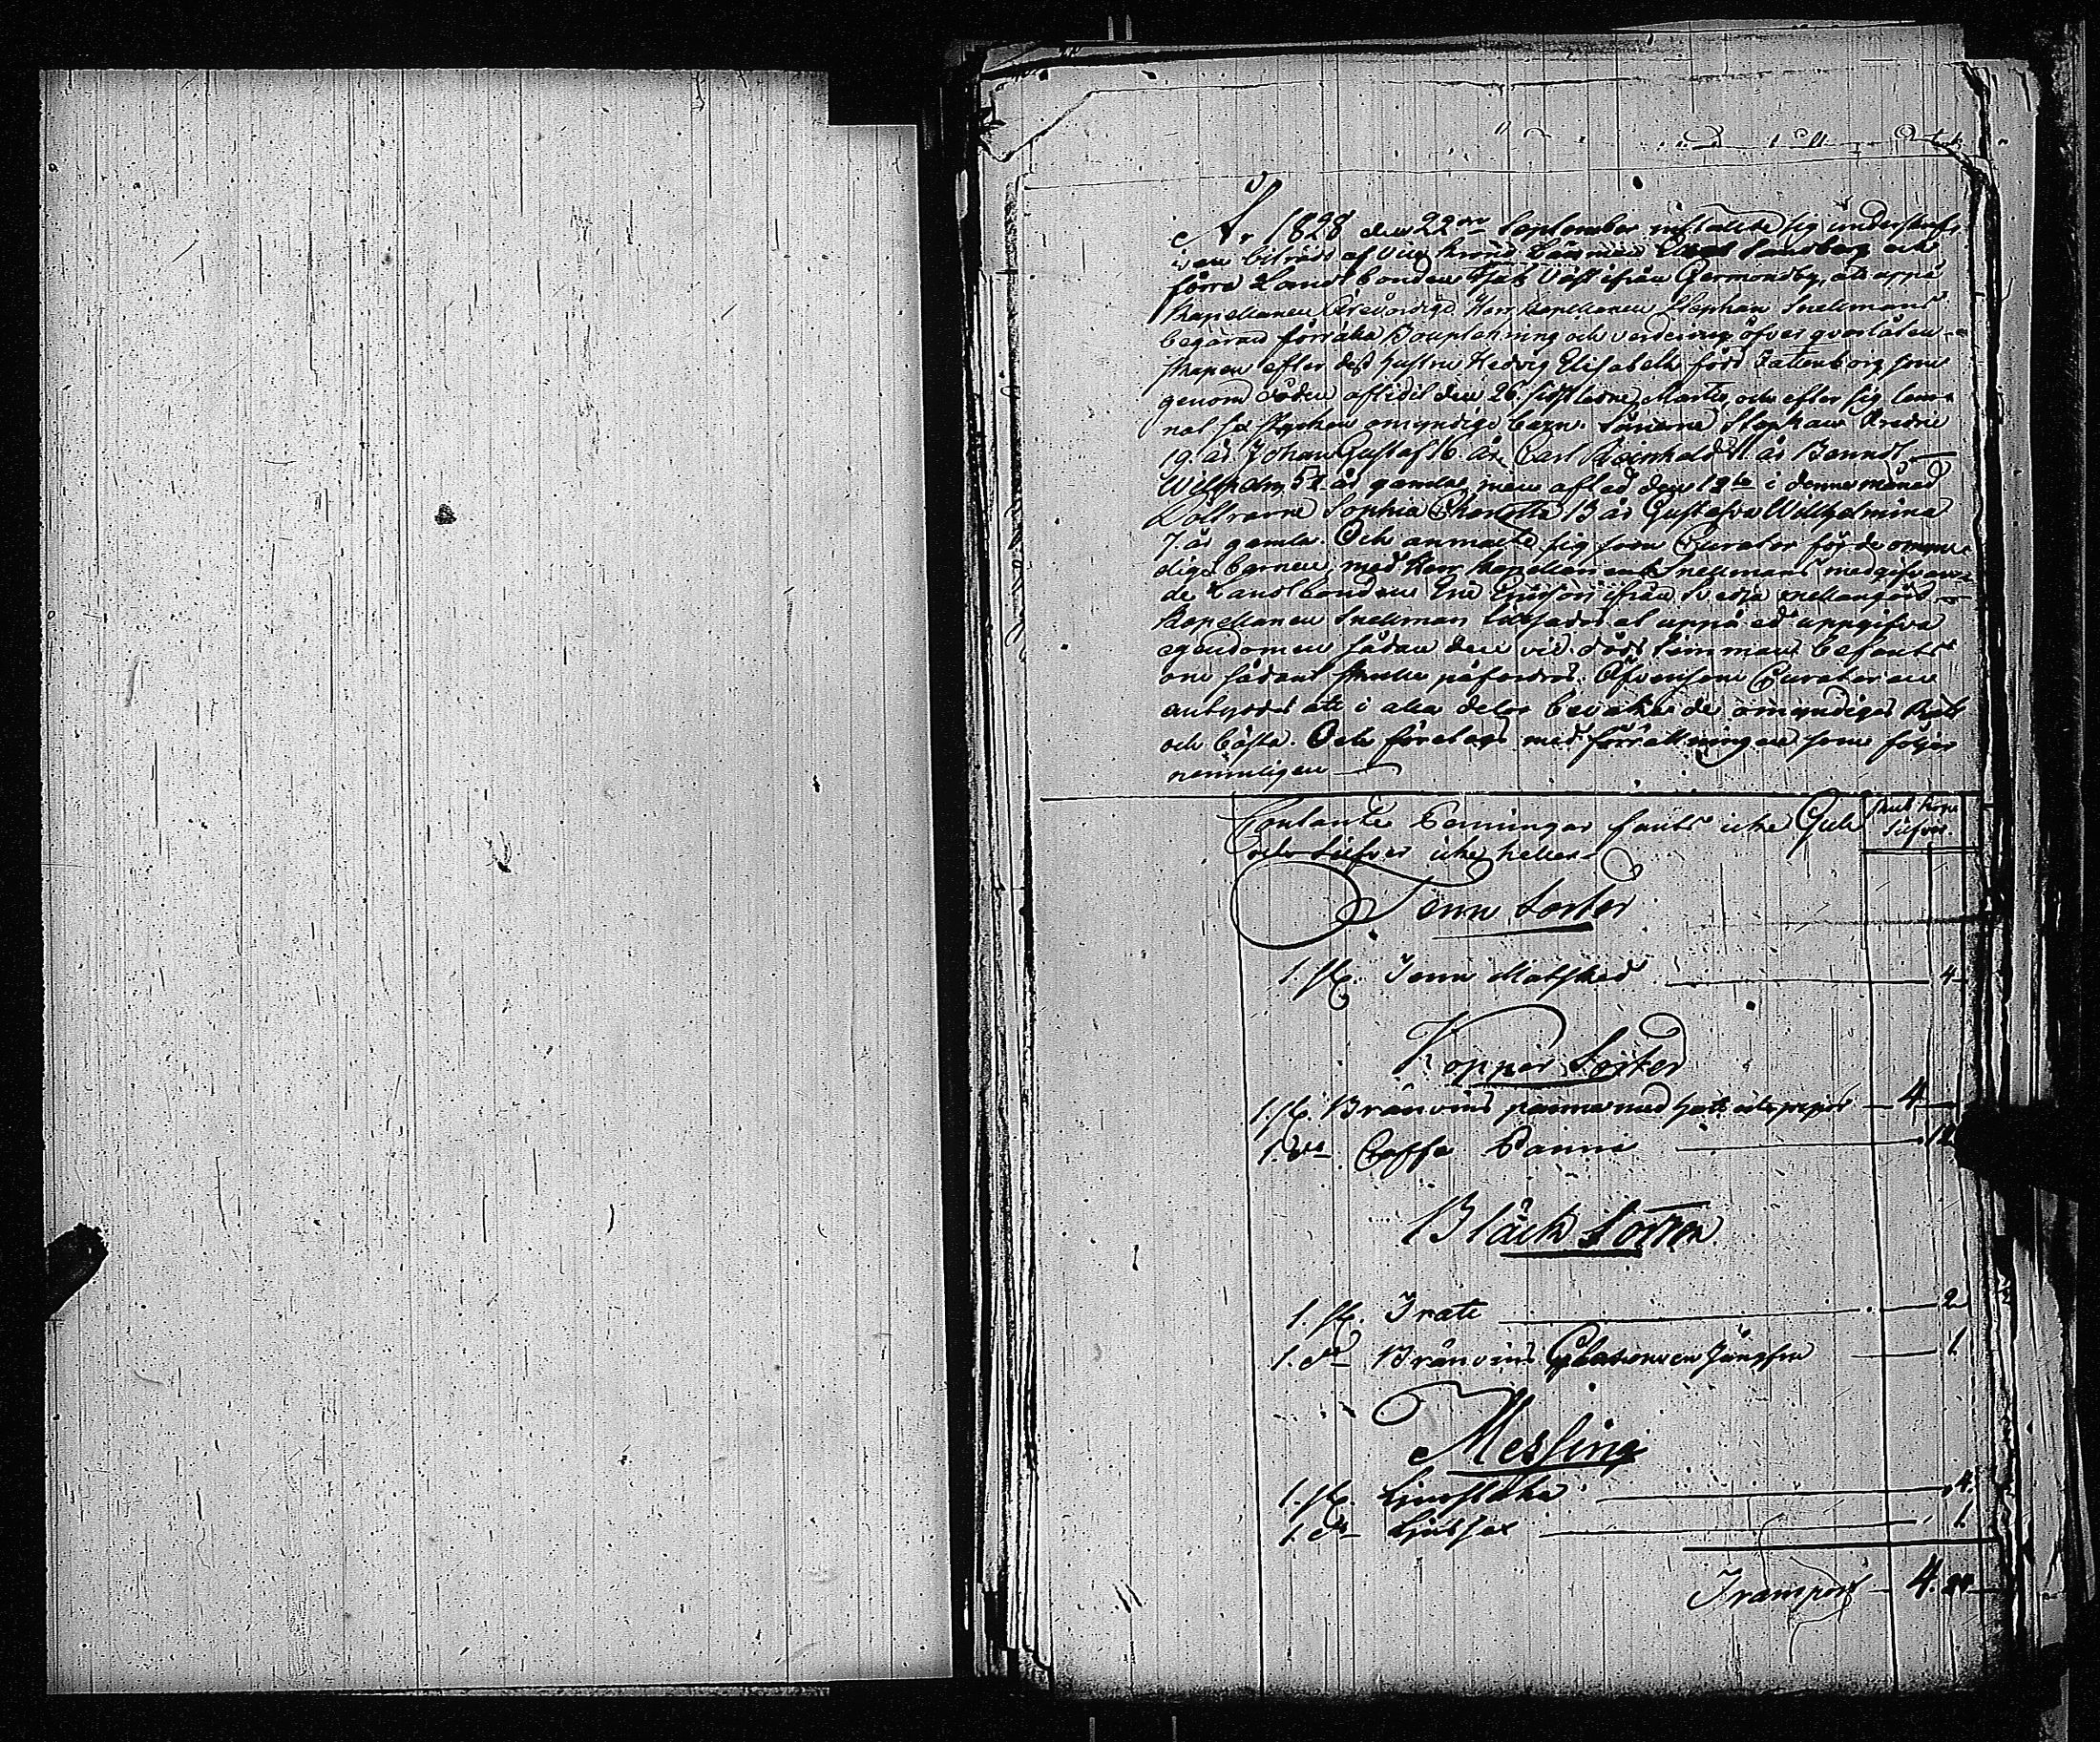 År 1828 den 22dre September instälte sig underskref-
ven biträdd af Vice Krono Länsman Sandberg och
förre Landtbonden Isak Väst ifrån Germundby, at uppå
Kapellanen Ärevördige Herr Kapellanen Stephan Snellmans
begäran förrätta Bouptekning och verdering öfver qvarlåten-
skapen efter dess hustru Hedvig Elisabeth född Fattenborg som
genom döden aflidit den 26. sistledne Martii, och efter sig lem-
nat sex stycken omyndige barn. Sönerne Stephan Fredric
19. år Johan Gustaf 16. år, Carl Reinhold 11 år Berndt
Wilhelm 5½ år gamla, men afled den 12te i denne månad
Döttrarne Sophia Charlotta 13 år Gustafva Wilhelmina
7. år gamla. Och anmälte sig som Curator för de omyn-
dige barnen, med Herr Kapellanen Snellmans medgifvan-
de Landtbonden Eric Ericsson ifrån
Kapellanen Snellman tillsades at uppå ed uppgifva
egendomen sådan den vid döds timman befants
om sådant skulle påfordras. Äfvensom Curatoren
antyddes att i alla delar bevaka de omyndiges Rätt
och bästa. Och företogs med förrättningen som följer
nemmligen
Contante Penningar fants icke Guld
och Silfver icke heller
Rub. Kop.
Silfver.
Tenn Sorter
1. st. Tenn Matsked 4
Koppar Sorter
1. st. Bränvins panna med hatt och pipor 4
1. do Caffe Panna 12
Bläck Sorter
1. st. Tratt 2
1. do Bränvins jungfru 1
Messing
1. st. Ljusstaka 4
1. do Ljussax 1
Transport 4.